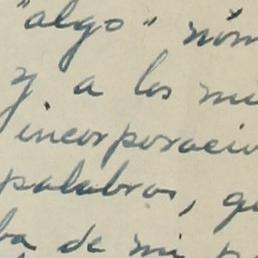 "algo" nóm
y a los me
incorporacio
palabras, qu
ba de mi p